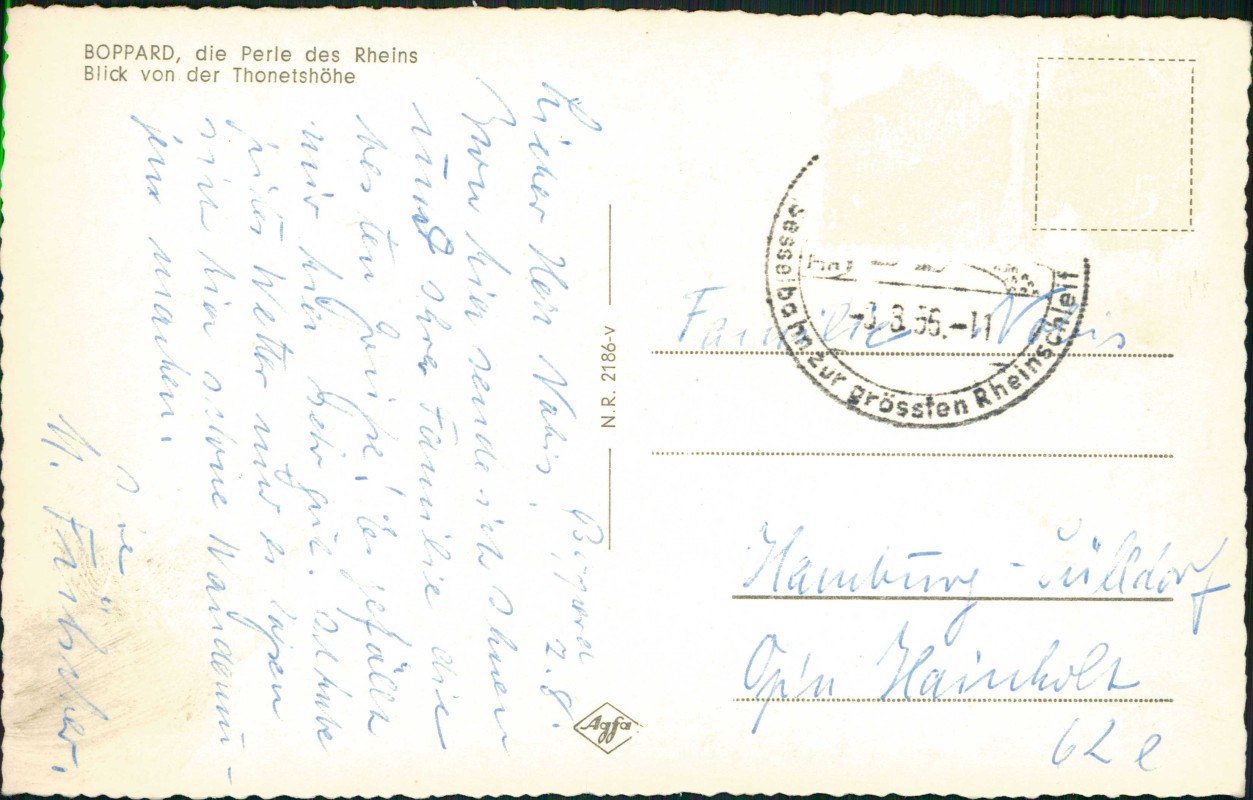 BOPPARD, die Perle des Rheins
Blick von der Thonetshöhe
Boppard
2.8.
Lieber Herr Nabis!
Von hier sende ich Ihnen
und Ihrer Familie die
besten Grüße. Es gefällt
mir hier sehr gut.
Wetter und es lassen
sich hier schöne Wanderun-
gen machen.
Ihre
N.R. 2186-v
Agfa
5
Sesselbahn zur grössten Rheinschleif
-3.8.56.-11
Familie Nabis
Hamburg - Sülldorf
Op'n Hainholt
62 e